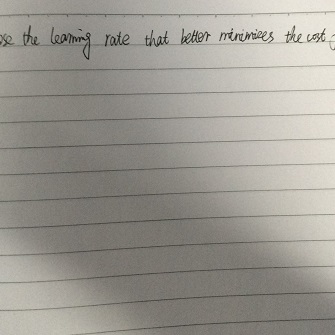 the learning rate that better minimizes the cost